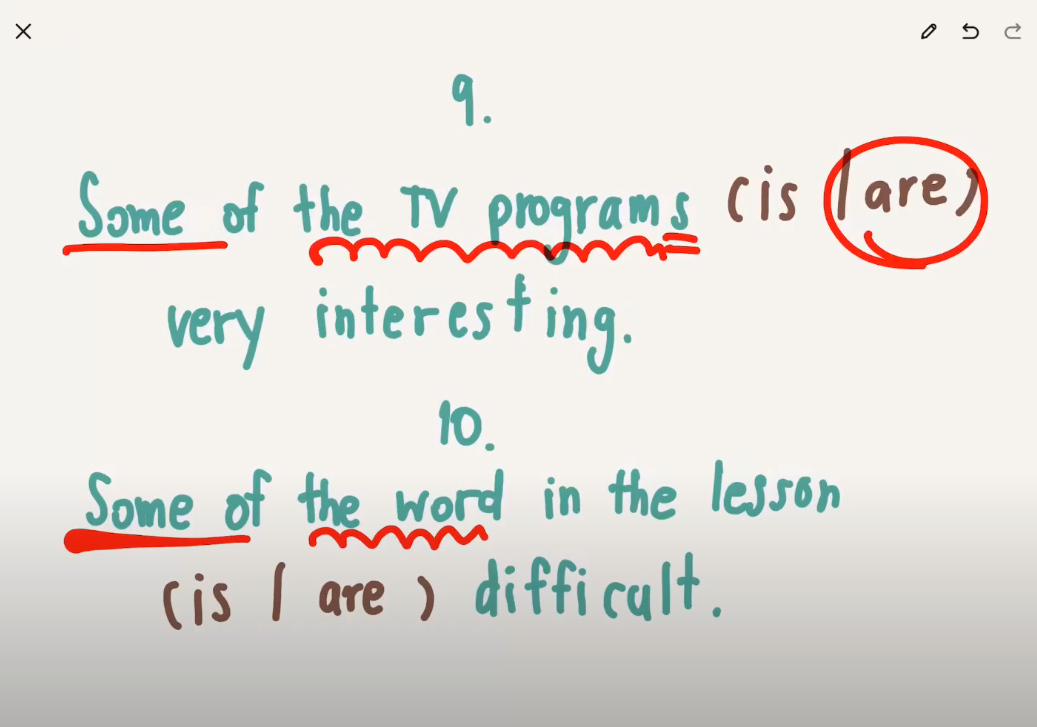 9.
Some of the TV programs (is / are)
very interesting.
10.
Some of the word in the lesson
(is / are) difficult.